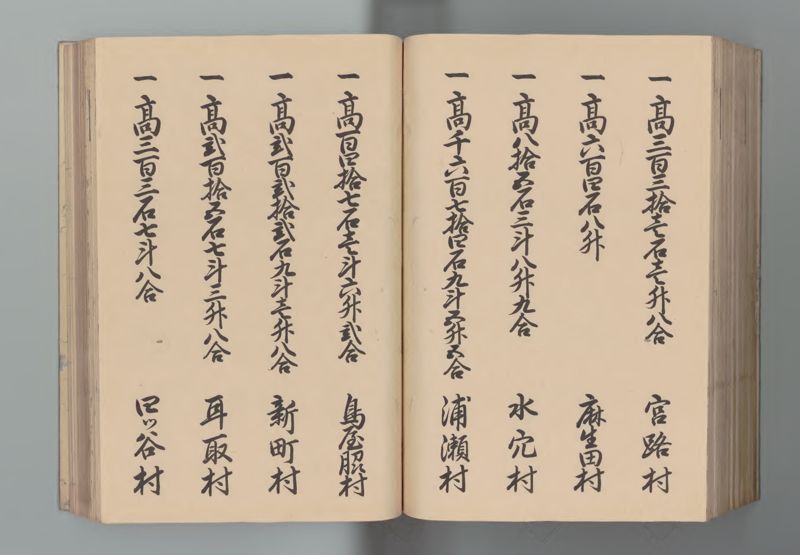 一高三百三拾壱石壱升八合 宮路村
一高六百四石八升 麻生田村
一高八拾五石三斗八升九合 水穴村
一高千六百七拾四石九斗五升五合 浦瀬村
一高百四拾七石壱斗六升弐合 鳥屋脇村
一高弐百弐拾弐石九斗壱升八合 新町村
一高弐百拾五石七斗三升八合 耳取村
一高三百三石七斗八合 四ツ谷村